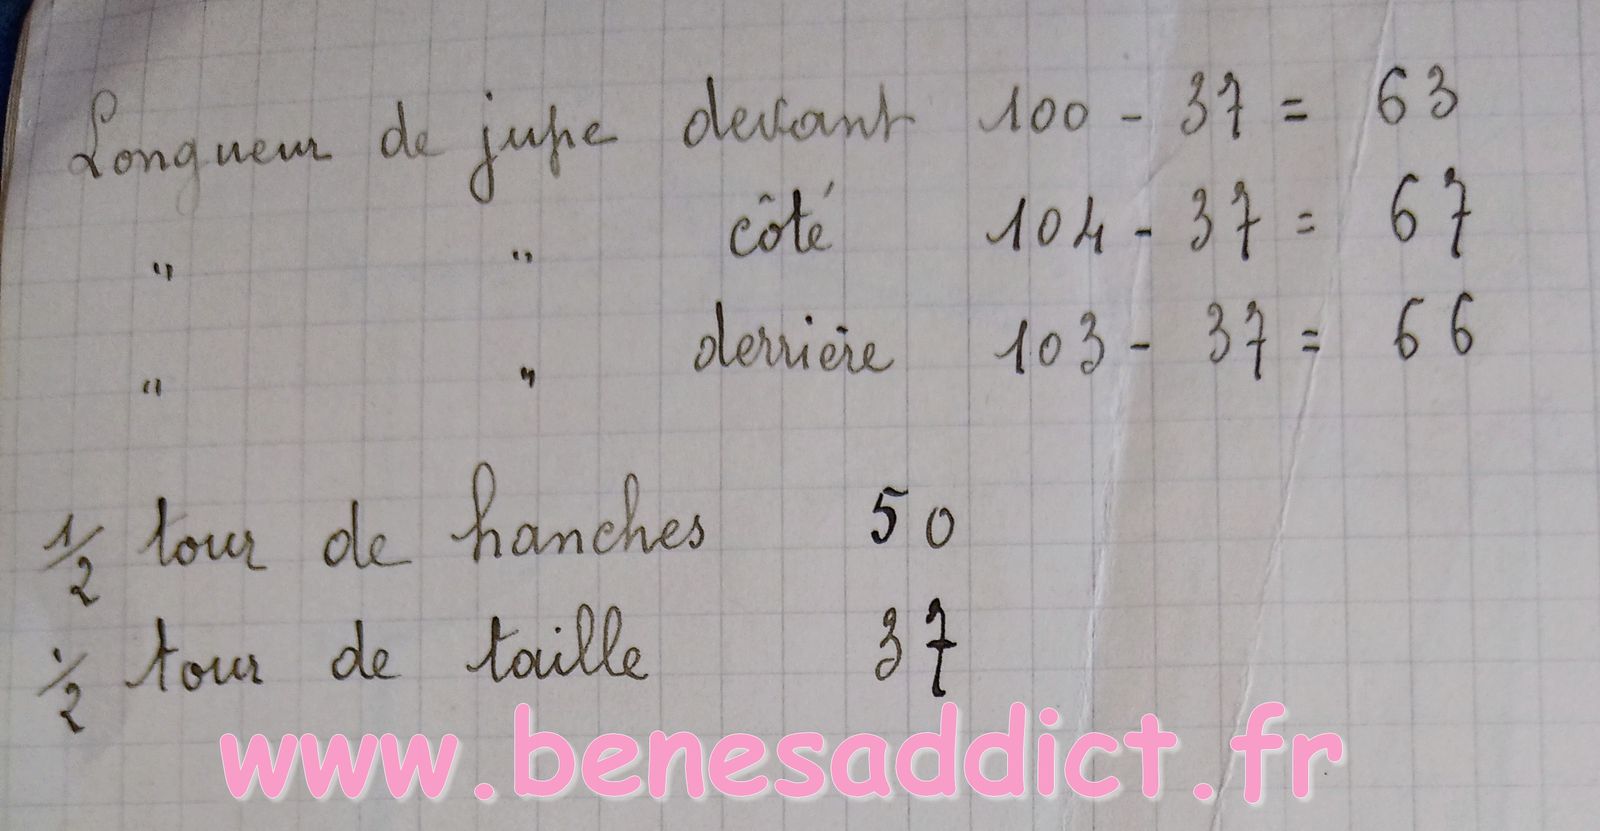 Longueur de jupe devant 100 - 37 = 63
" " côté 104 - 37 = 67
" " derrière 103 - 37 = 66
1/2 tour de hanches 50
1/2 tour de taille 37
www.benesaddict.fr